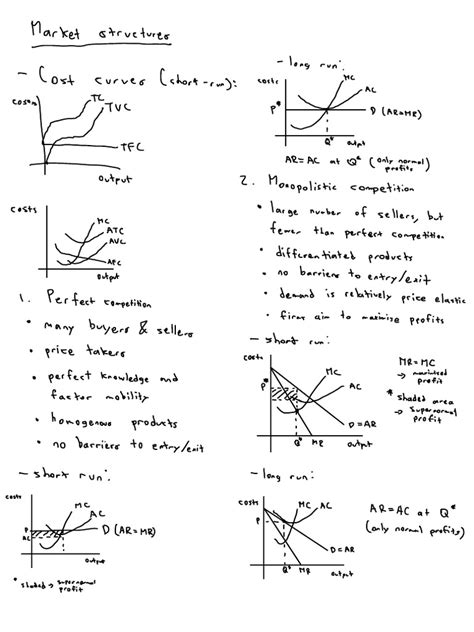 Market structures
- Cost curves (short-run):
costs
TC
TVC
TFC
output
costs
MC
ATC
AVC
AFC
output
1. Perfect competition
• many buyers & sellers
• price takers
• perfect knowledge and
factor mobility
• homogenous products
• no barriers to entry/exit
- short run:
costs
MC
AC
P
AC
D (AR=MR)
output
* shaded → supernormal
profit
- long run:
costs
MC
AC
P*
D (AR=MR)
Q*
output
AR=AC at Q* (only normal
profits)
2. Monopolistic competition
• large number of sellers, but
fewer than perfect competition
• differentiated products
• no barriers to entry/exit
• demand is relatively price elastic
• firms aim to maximise profits
- short run:
costs
MC
AC
P*
D=AR
Q*
MR
output
MR=MC
→ maximised
profit
* shaded area
→ supernormal
profit
- long run:
costs
MC
AC
P
D=AR
Q*
MR
output
AR=AC at Q*
(only normal profits)